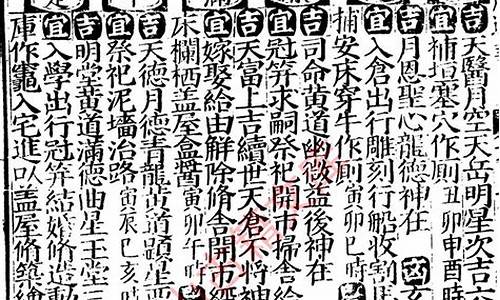 吉天醫月空天岳明星次吉六
宜補垣塞穴作厠丑卯申酉時
吉月恩聖心龍德神在凶
宜入倉出行雕刻行船收割
捕安床穿牛作厠寅卯巳時
吉司命黃道幽微益後神在
宜冠笄求嗣祭祀開市掃舍給
吉天富上吉續世天倉不將神
宜嫁娶給由解除脩舍開市經
床欄栖盖屋盒醬寅卯午時
吉天德月德青龍黃道顕星
宜祭祀泥墻治路寅辰巳亥時
吉明堂黃道滿德曲星玉堂三
宜入學出行冠笄結婚脩造動
庫作竈入宅進以盖屋脩築